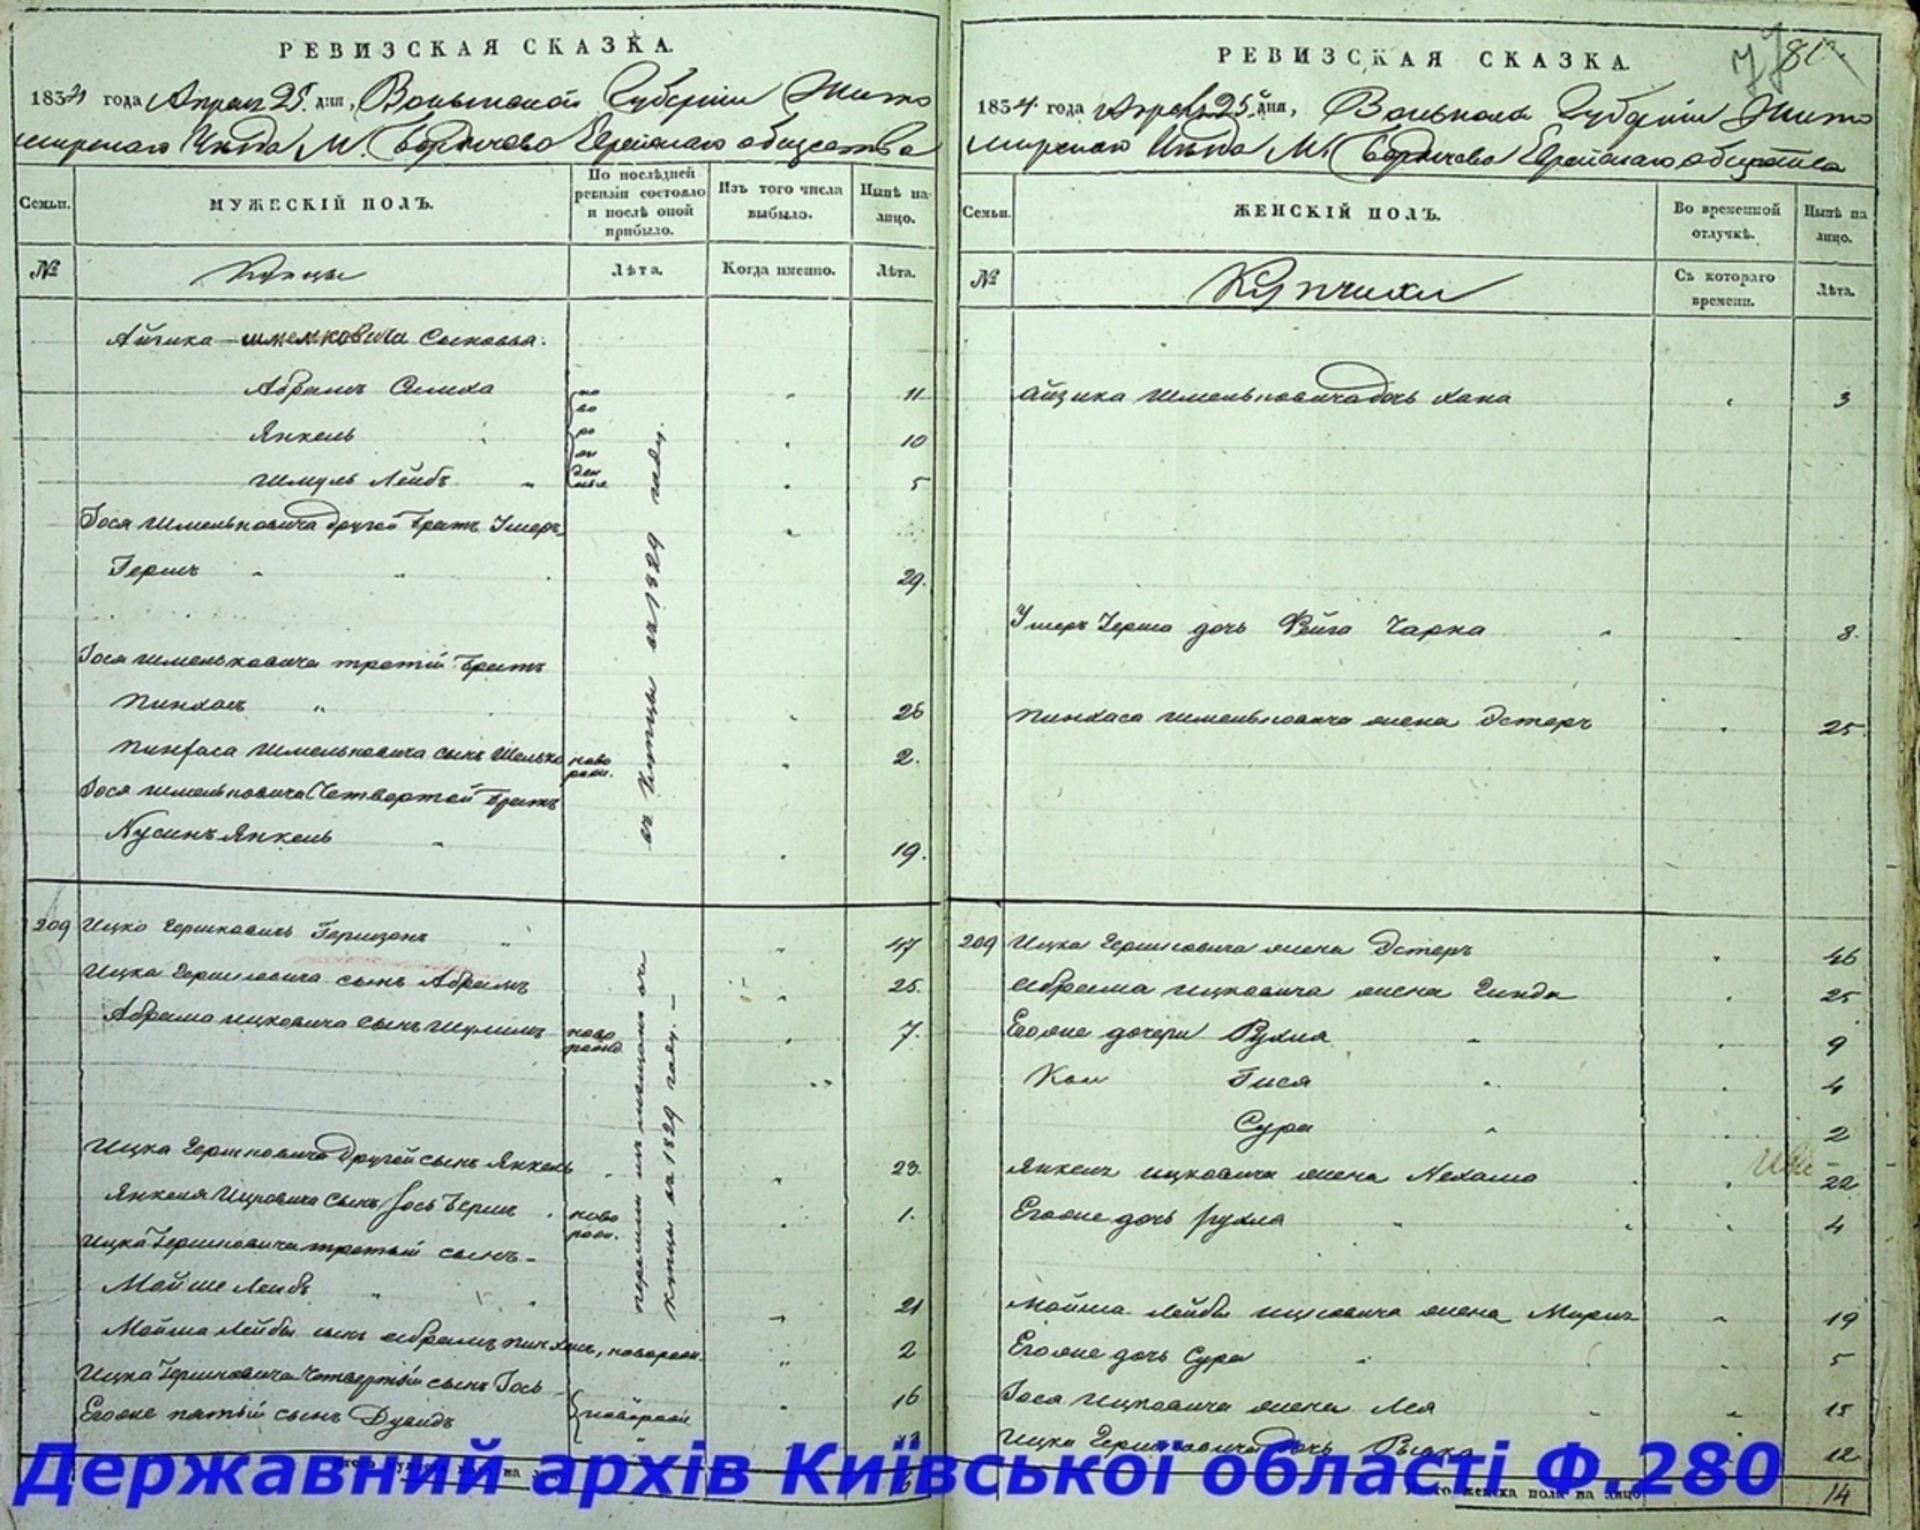 РЕВИЗСКАЯ СКАЗКА.
1834 года Апреля 25. дня, Волынской Губернии Жито
мирскаго Уѣзда М. Бердичева Еврейскаго общества
Семьи.
МУЖЕСКІЙ ПОЛЪ.
По послѣдней ревизіи состояло и послѣ оной прибыло.
Изъ того числа выбыло.
Нынѣ на-лицо.
№
Купцы
Лѣта.
Когда именно.
Лѣта.
Айзика Шмельковича сыновья.
Абрамъ Симха 11
Янкель 10
Шмуль Лейбъ 5
ново рожденные
Іося Шмельковича другой братъ Умеръ
Гершъ 29.
Іося Шмельковича третій братъ
Пинхасъ 26
Пинхаса Шмельковича сынъ Шмелько ново рожд. 2.
Іося Шмельковича Четвертой братъ
Нусинъ Янкель 19.
въ 1829 году.
209 Ицко Гершковичъ Гершзонъ 47
Ицка Гершковича сынъ Абрамъ 25.
Абрама Ицковича сынъ Шулимъ ново рожд 7.
Ицка Гершковича другой сынъ Янкель 23.
Янкеля Ицковича сынъ Іось Гершъ ново рожд. 1.
Ицка Гершковича третьій сынъ
Мойше Лейбъ 21
Мойша Лейбы сынъ Абрамъ Пинхасъ, новорож. 2
Ицка Гершковича Четвертый сынъ Іось 16
Егоже пятый сынъ Дувидъ новорож
купцы въ 1829 году.
РЕВИЗСКАЯ СКАЗКА.
1834 года Апреля 25 дня, Волынской Губерніи Жито
мирскаго Уѣзда М. Бердичева Еврейскаго общества
Семьи.
ЖЕНСКІЙ ПОЛЪ.
Во временной отлучкѣ.
Нынѣ на лицо.
№
Купчихи
Съ котораго времени.
Лѣта.
Айзика Шмельковича дочь Хана 3
Умеръ Герша дочь Фейга Чарна 8.
Пинхаса Шмельковича жена Эстеръ 25
209 Ицка Гершковича жена Эстеръ 46
Абрама Ицковича жена Гинда 25
Егоже дочери Рухля 9
Гися 4
Сура 2
Янкеля Ицковича жена Нехама 22
Егоже дочь Рухля 4
Мойша Лейбы Ицковича жена Миріъ 19
Егоже дочь Сура 5
Іося Ицковича жена Лея 15
Ицка Гершковича дочь Рывка 12
женска пола на лицо 14
Державний архів Київської області Ф.280